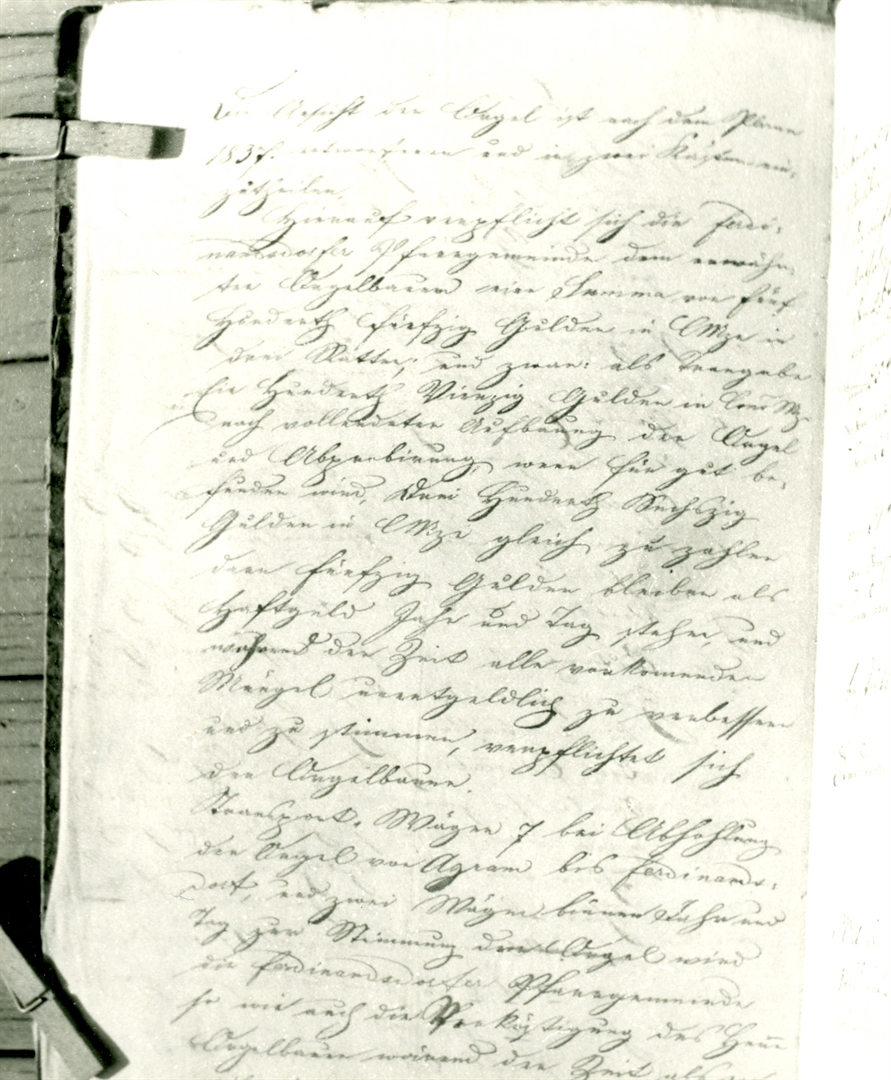 Die Ansicht der Orgel ist nach dem Plane
1837. entworfenen und in zwei Kästen ein-
zutheilen.
Hierauf verpflicht sich die Ferdi-
nandsdorfer Pfarrgemeinde dem erwähn-
ten Orgelbauer eine Summa von Fünf
Hunderth Fünfzig Gulden in CMze in
drei Ratten; und zwar: als Drangabe
Ein Hunderth Vierzig Gulden in Con: Mze
nach vollendeter Aufbauung der Orgel
und Abprobirung, wenn für gut be-
funden wird, Drei Hunderth Sechszig
Gulden in CMze gleich zu zahlen
dann Fünfzig Gulden bleiben als
Haftgeld Jahr und Tag stehen, und
während der Zeit alle vorkomenden
Mängel unentgeldlich zu verbessern
und zu stimmen, verpflichtet sich
der Orgelbauer.
Transport. Wägen 7 bei Abhohlung
der Orgel von Agram bis Ferdinands-
dorf, und zwei Wägen binnen Jahr und
Tag zur Stimmung der Orgel wird
die Ferdinandsdorfer Pfarrgemeinde
so wie auch die Verköstigung des Herrn
Orgelbauer während der Zeit als